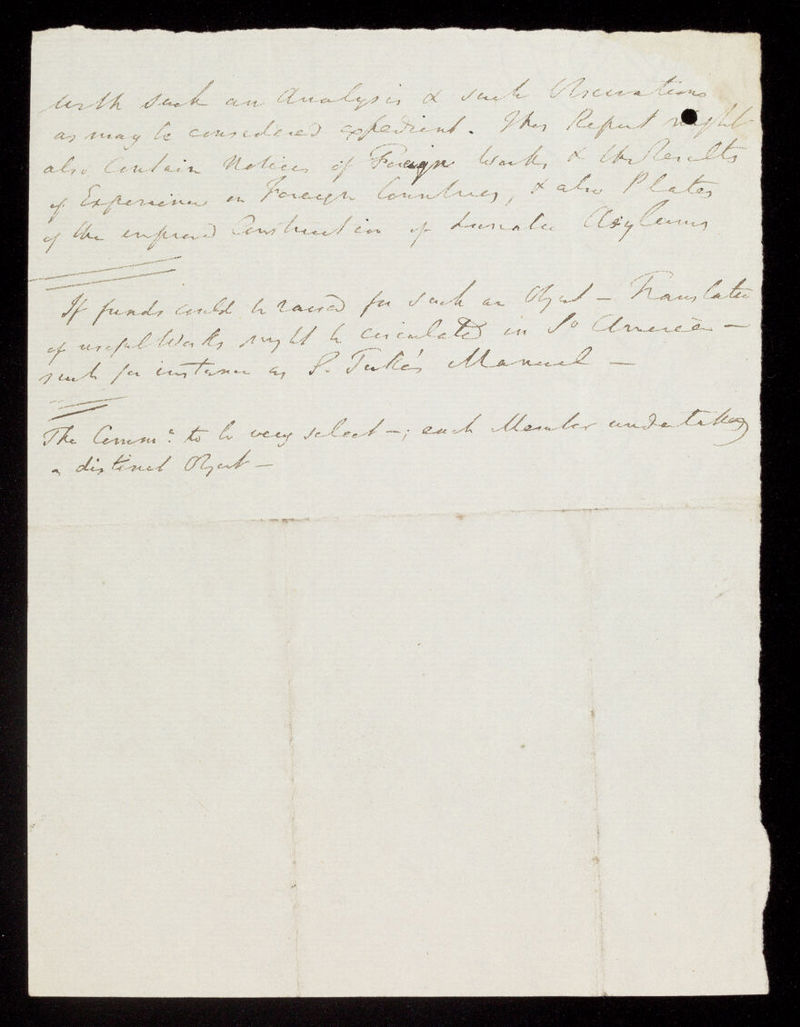 with such an Analysis & such Observations
as may be considered expedient. This Report might
also Contain Notices of Foreign Works & the Results
of Experience in Foreign Countries, & also Plates
of the improved Construction of Lunatic Asylums
If funds could be raised for such an Object – Translations
of useful Works might be circulated in So America –
such for instance as S. Tuke's Manual –
The Comme. to be very select –; each Member undertaking
a distinct Object –